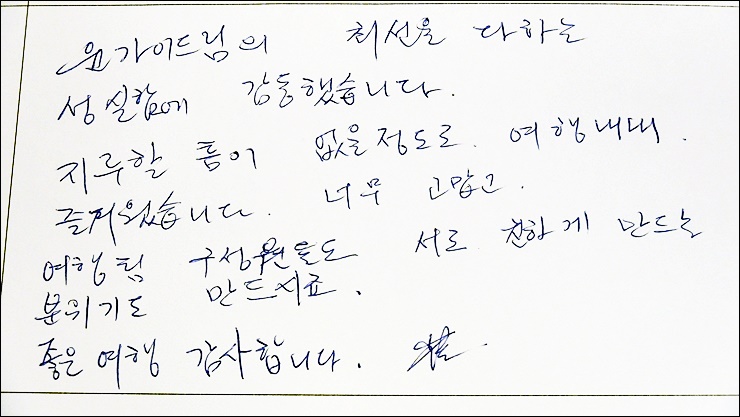 윤가이드림의 최선을 다하는
성실함에 감동했습니다.
지루할 틈이 없을정도로. 여행내내.
즐거웠습니다. 너무 고맙고.
여행팀 구성원들도 서로 친하게 만드는
분위기도 만드시료.
좋은 여행 감사합니다.